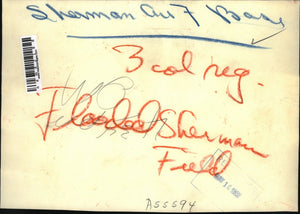 Sherman Air F Base
3 col reg.
Flooded Sherman
Field
A55594